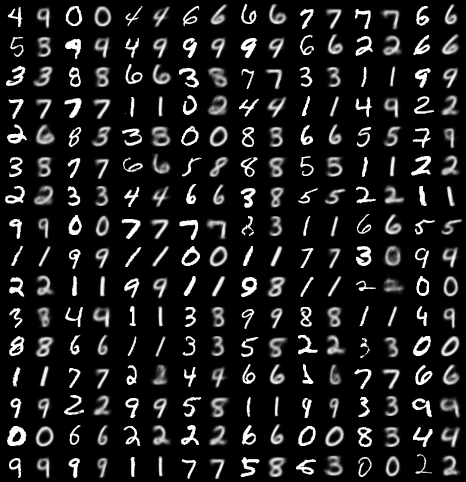 4 9 0 0 4 4 6 6 6 6 7 7 7 7 6 6
5 3 9 9 4 9 9 9 9 9 6 6 2 2 6 6
3 3 8 8 6 6 3 8 7 7 3 3 1 1 9 9
7 7 7 7 1 1 0 2 4 4 1 1 4 9 2 2
2 6 8 3 3 8 0 0 8 3 6 6 5 5 7 9
3 8 7 7 6 6 5 8 8 8 5 5 1 1 2 2
2 2 3 3 4 4 6 6 3 8 5 5 2 2 1 1
9 9 0 0 7 7 7 7 3 3 1 1 6 6 5 5
1 1 9 9 1 1 0 0 1 1 7 7 3 0 9 9
2 2 1 1 9 9 1 1 9 8 1 1 2 0 0
3 8 4 9 1 1 3 8 9 9 8 8 1 1 4 9
8 8 6 6 1 1 3 3 5 8 2 2 3 3 0 0
1 1 7 7 2 4 4 6 6 1 6 7 7 6 6
9 9 2 2 9 9 5 8 1 1 9 9 3 3 9 9
0 0 6 6 2 2 2 2 6 6 0 0 8 3 4 4
9 9 9 9 1 1 7 7 5 8 3 0 0 2 2